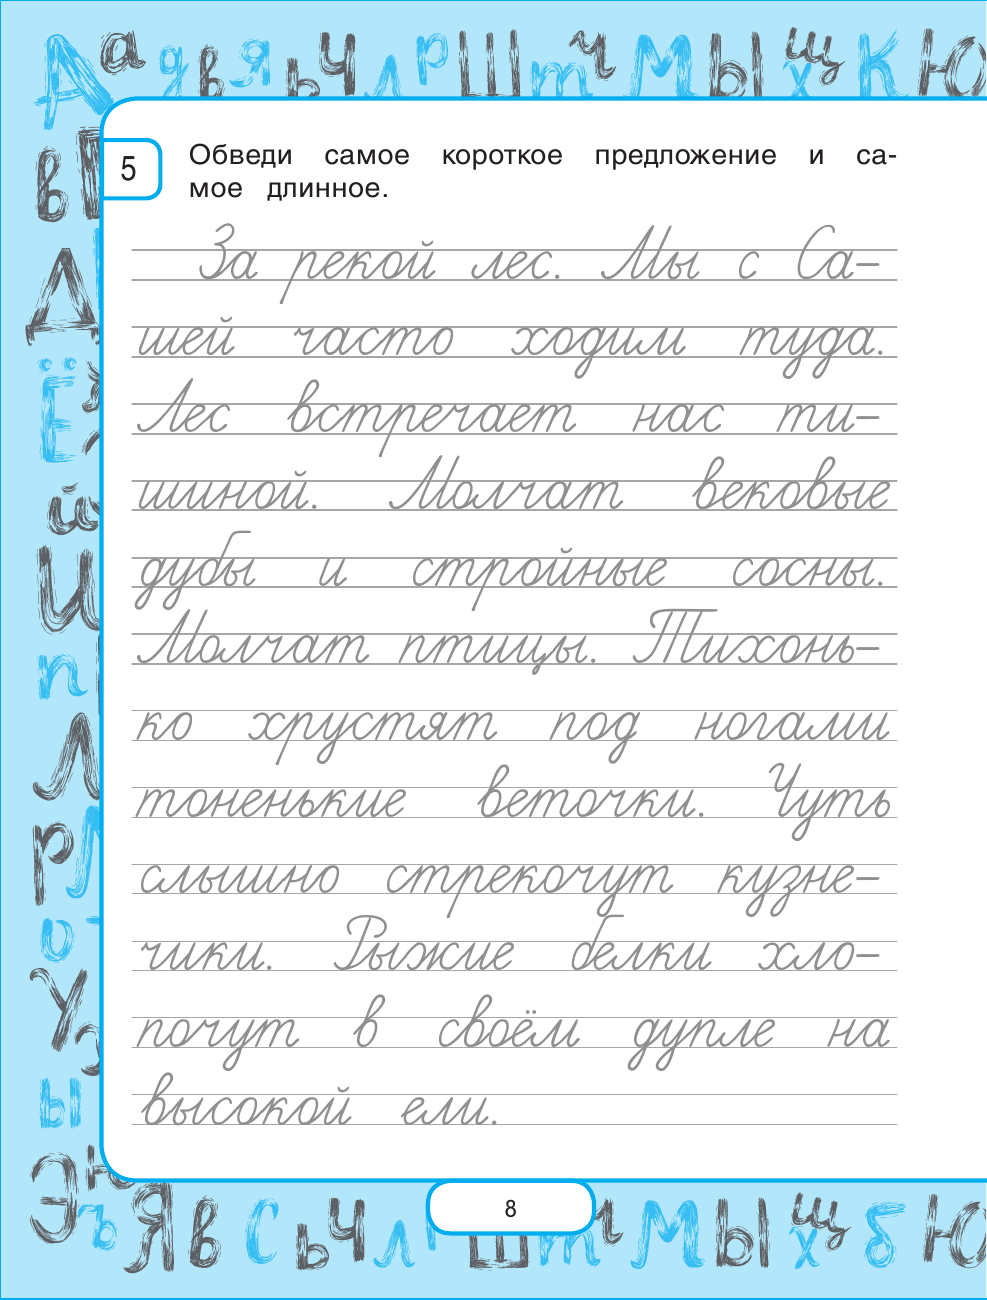 Аа д в я ь Ч л р Ш т ч М Ы щ х К Ю
5
Обведи самое короткое предложение и са-
мое длинное.
За рекой лес. Мы с Са-
шей часто ходим туда.
Лес встречает нас ти-
шиной. Молчат вековые
дубы и стройные сосны.
Молчат птицы. Тихонь-
ко хрустят под ногами
тоненькие веточки. Чуть
слышно стрекочут кузне-
чики. Рыжие белки хло-
почут в своём дупле на
высокой ели.
в
Д
Ё
й
И
п
Л
р
У
ы
Э ъ Я в С ь Ч л р Ш т ч М Ы щ х б Ю
8